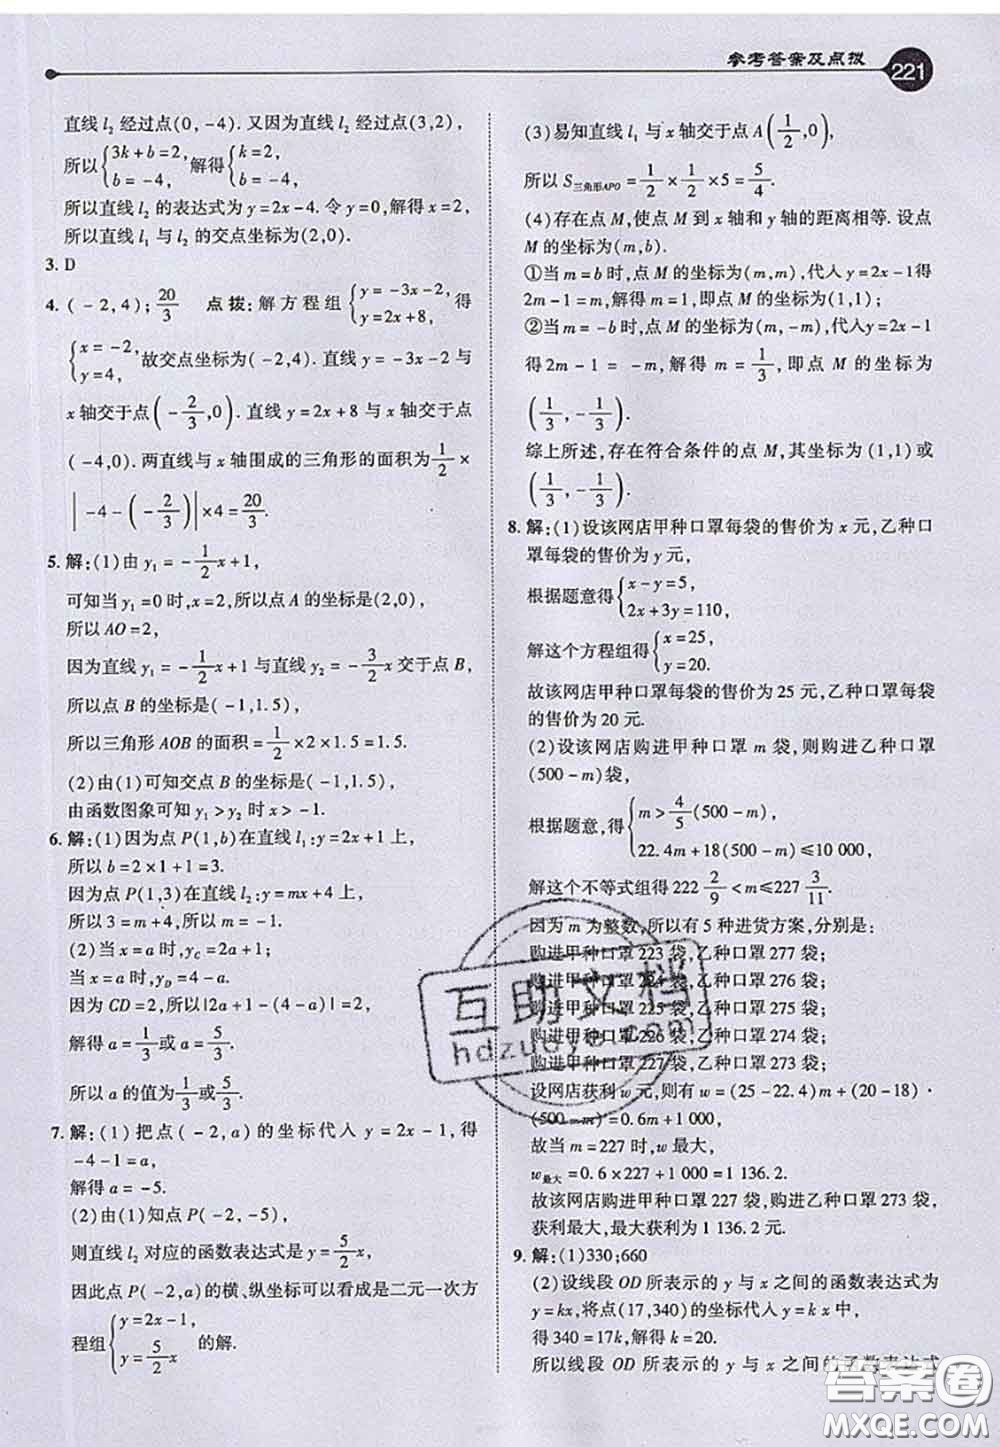 参考答案及点拨
221
直线 l₂ 经过点(0,-4).又因为直线 l₂ 经过点(3,2),
所以{3k+b=2, b=-4, 解得{k=2, b=-4,
所以直线 l₂ 的表达式为 y=2x-4.令 y=0,解得 x=2,
所以直线 l₁ 与 l₂ 的交点坐标为(2,0).
3. D
4. (-2,4);20/3 点拨:解方程组{y=-3x-2, y=2x+8, 得
{x=-2, y=4, 故交点坐标为(-2,4).直线 y=-3x-2 与
x 轴交于点(-2/3,0).直线 y=2x+8 与 x 轴交于点
(-4,0).两直线与 x 轴围成的三角形的面积为1/2×
|-4-(-2/3)|×4=20/3.
5. 解:(1)由 y₁=-1/2x+1,
可知当 y₁=0 时,x=2,所以点 A 的坐标是(2,0),
所以 AO=2,
因为直线 y₁=-1/2x+1 与直线 y₂=-3/2x 交于点 B,
所以点 B 的坐标是(-1,1.5),
所以三角形 AOB 的面积=1/2×2×1.5=1.5.
(2)由(1)可知交点 B 的坐标是(-1,1.5),
由函数图象可知 y₁>y₂ 时 x>-1.
6. 解:(1)因为点 P(1,b)在直线 l₁:y=2x+1 上,
所以 b=2×1+1=3.
因为点 P(1,3)在直线 l₂:y=mx+4 上,
所以 3=m+4,所以 m=-1.
(2)当 x=a 时,y_C=2a+1;
当 x=a 时,y_D=4-a.
因为 CD=2,所以|2a+1-(4-a)|=2,
解得 a=1/3或 a=5/3.
所以 a 的值为1/3或5/3.
7. 解:(1)把点(-2,a)的坐标代入 y=2x-1,得
-4-1=a,
解得 a=-5.
(2)由(1)知点 P(-2,-5),
则直线 l₂ 对应的函数表达式是 y=5/2x,
因此点 P(-2,a)的横、纵坐标可以看成是二元一次方
程组{y=2x-1, y=5/2x 的解.
(3)易知直线 l₁ 与 x 轴交于点 A(1/2,0),
所以 S三角形APO=1/2×1/2×5=5/4.
(4)存在点 M,使点 M 到 x 轴和 y 轴的距离相等.设点
M 的坐标为(m,b).
①当 m=b 时,点 M 的坐标为(m,m),代入 y=2x-1得
2m-1=m,解得 m=1,即点 M 的坐标为(1,1);
②当 m=-b 时,点 M 的坐标为(m,-m),代入y=2x-1
得 2m-1=-m,解得 m=1/3,即点 M 的坐标为
(1/3,-1/3).
综上所述,存在符合条件的点 M,其坐标为(1,1)或
(1/3,-1/3).
8. 解:(1)设该网店甲种口罩每袋的售价为 x 元,乙种口
罩每袋的售价为 y 元,
根据题意得{x-y=5, 2x+3y=110,
解这个方程组得{x=25, y=20.
故该网店甲种口罩每袋的售价为 25 元,乙种口罩每袋
的售价为 20 元.
(2)设该网店购进甲种口罩 m 袋,则购进乙种口罩
(500-m)袋,
根据题意,得{m>4/5(500-m), 22.4m+18(500-m)≤10 000,
解这个不等式组得 222 2/9<m≤227 3/11.
因为 m 为整数,所以有 5 种进货方案,分别是:
购进甲种口罩 223 袋,乙种口罩 277 袋;
购进甲种口罩 224 袋,乙种口罩 276 袋;
购进甲种口罩 225 袋,乙种口罩 275 袋;
购进甲种口罩 226 袋,乙种口罩 274 袋;
购进甲种口罩 227 袋,乙种口罩 273 袋;
设网店获利 w 元,则有 w=(25-22.4)m+(20-18)·
(500-m)=0.6m+1 000,
故当 m=227 时,w 最大,
w最大=0.6×227+1 000=1 136.2,
故该网店购进甲种口罩 227 袋,购进乙种口罩 273 袋,
获利最大,最大获利为 1 136.2 元.
9. 解:(1)330;660
(2)设线段 OD 所表示的 y 与 x 之间的函数表达式为
y=kx,将点(17,340)的坐标代入 y=kx中,
得 340=17k,解得 k=20.
所以线段 OD 所表示的 y 与 x 之间的函数表达式
互助文档
hdzuoye.com
答案圈
MXQE.COM